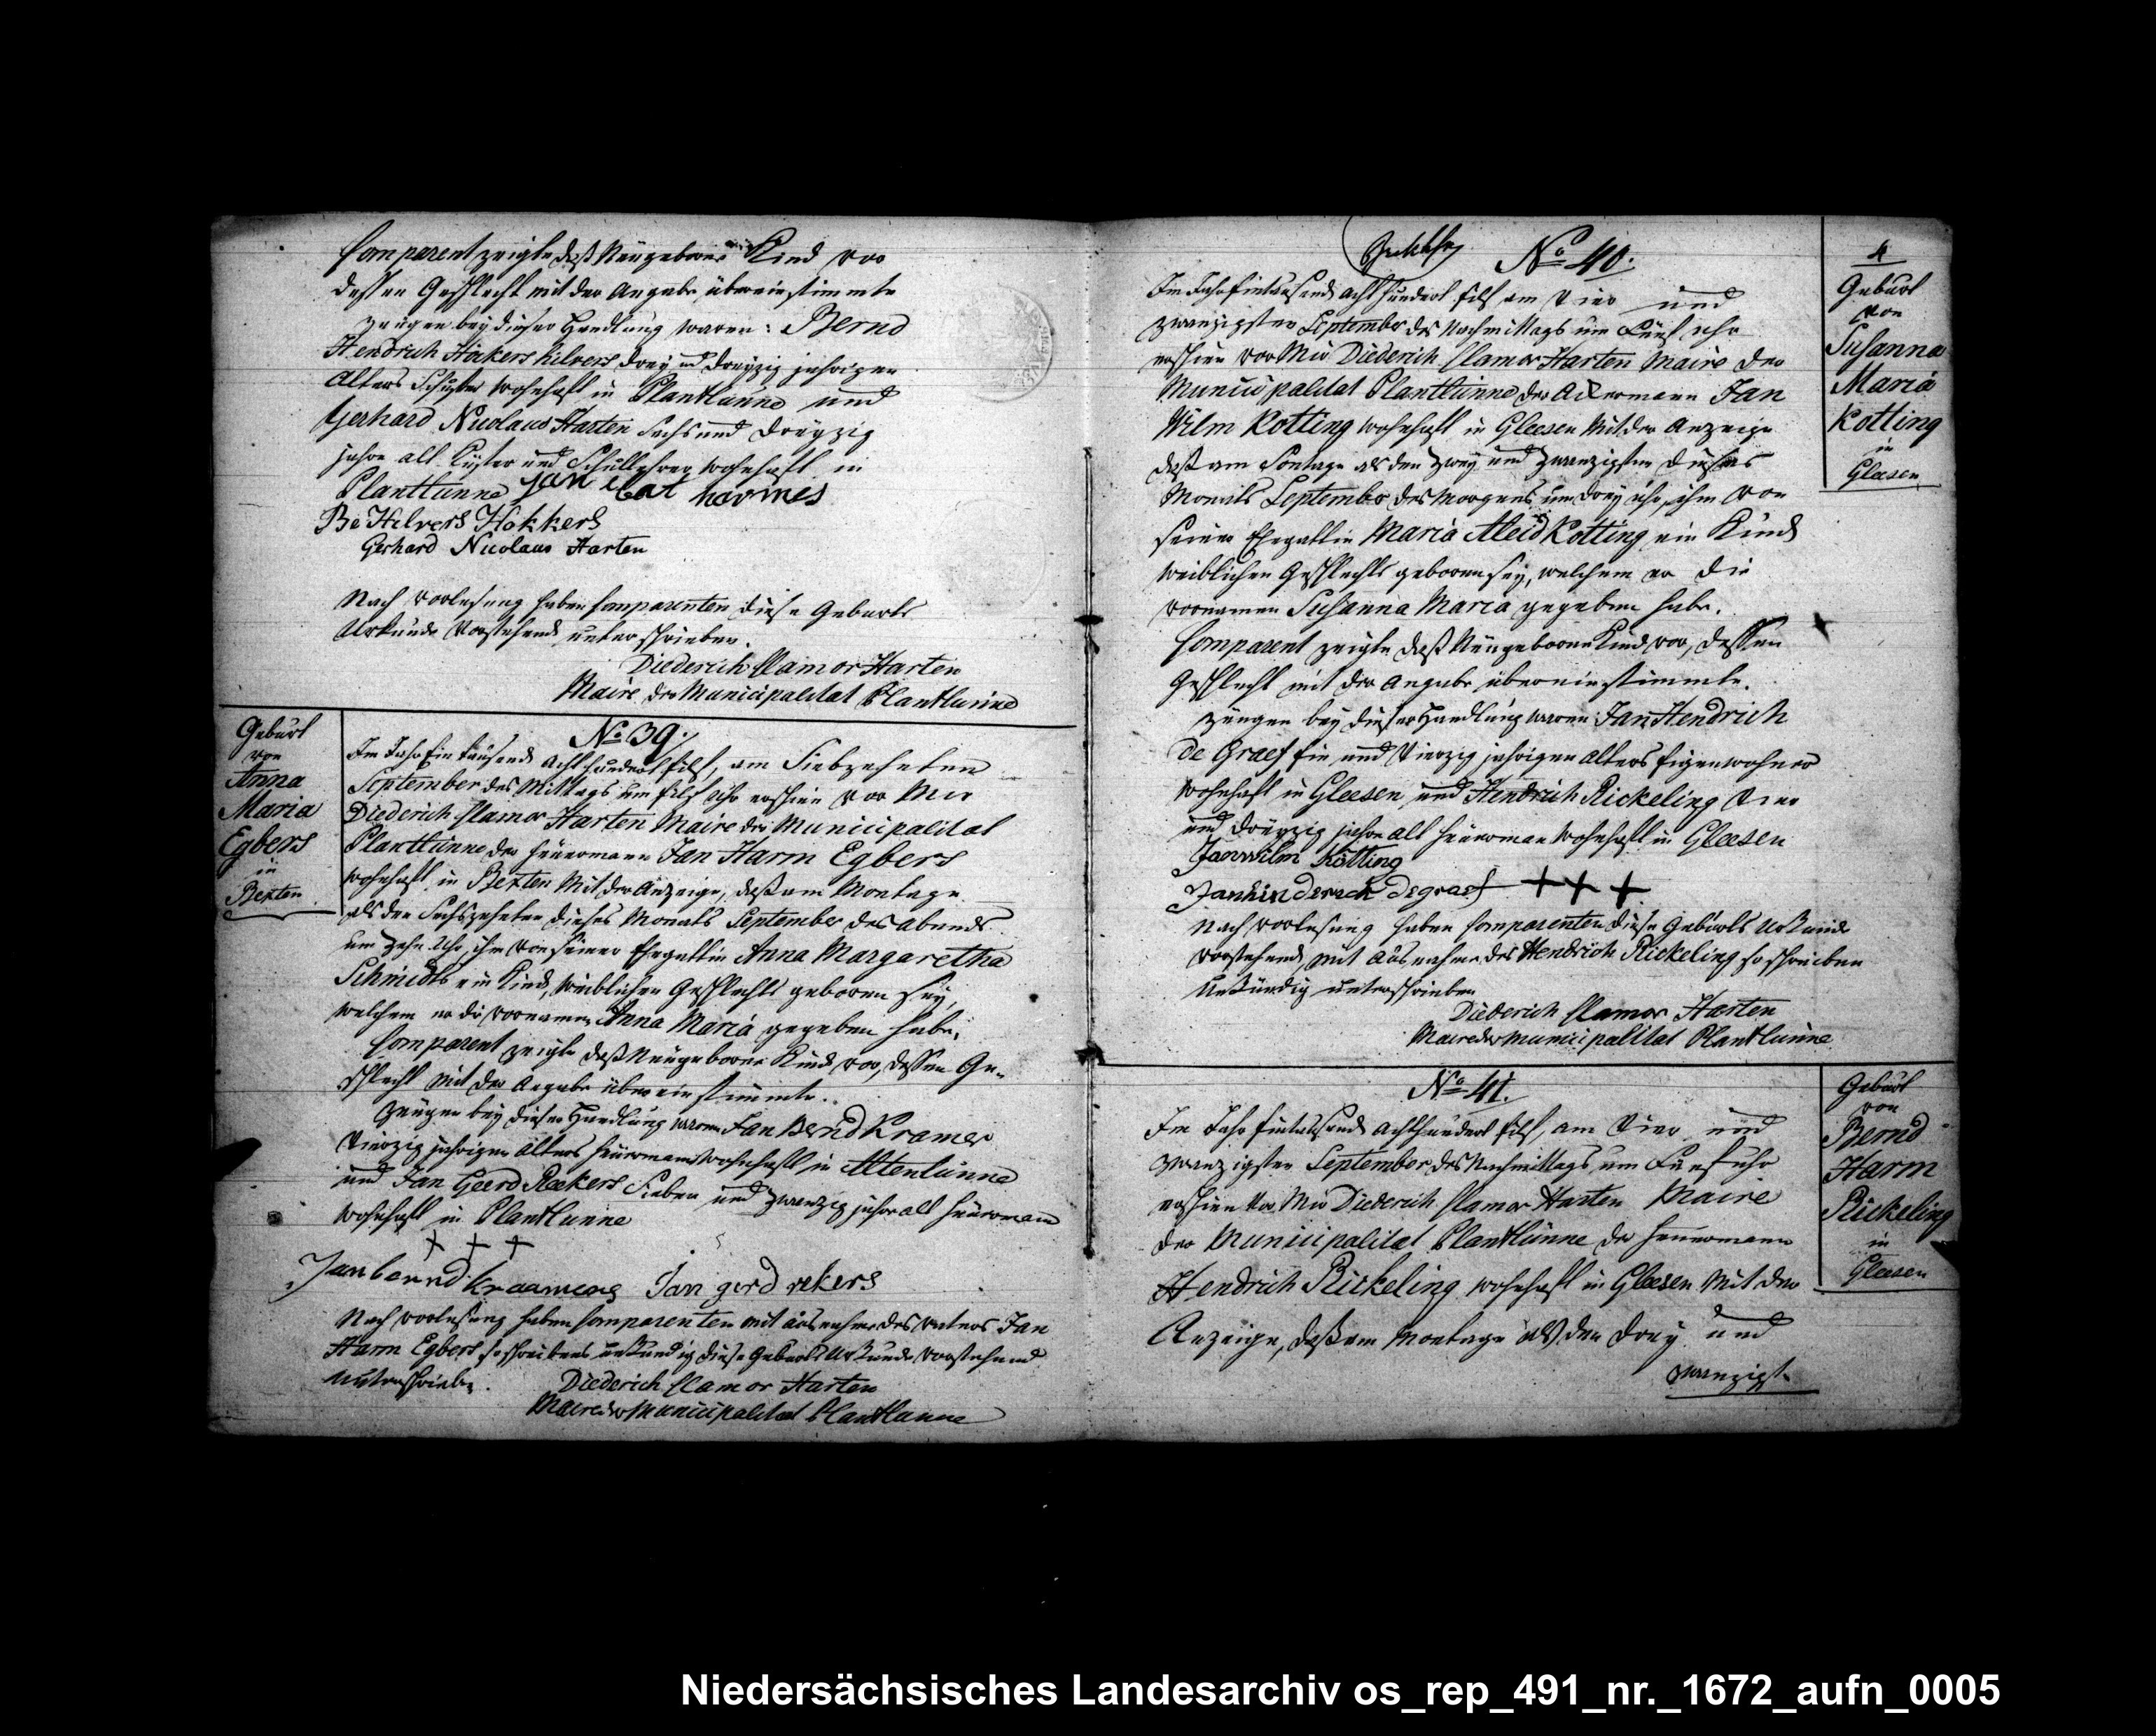 Comparent zeigte daß Neugeborne Kind vor
dessen Geschlecht mit der Angabe übereinstimmte
Zeugen bey dieser Handlung waren: Bernd
Hendrich Höckers hilvers drey und dreyzig jahrigen
Alters Schuster wohnhaft in Plantlünne und
Gerhard Nicolaus Harten sechs und dreyzig
jahre alt Cüster und Schullehrer wohnhaft in
Plantlünne jan harmes
Be Hilvers Hökkers
Gerhard Nicolaus Harten
Nach vorlesung haben Comparenten diese Geburts
Urkunde Vorstehend unterschrieben.
Diederich Clamor Harten
Maire der Municipalitat Plantlünne
Geburt
von
Anna
Maria
Egbers
in
Bexten
No 39.
Im Jahr Ein tausend Acht hundert Eilf, am Siebzehnten
September des Mittags um Eilf Uhr erschien vor Mir
Diederich Clamor Harten Maire der Municipalitat
Plantlünne der Heuermann Jan Harm Egbers
wohnhaft in Bexten Mit der Anzeige, daß am Montage
als den Sechszehnten dieses Monats September des Abends
um Zehn Uhr, ihm von seiner Ehegattin Anna Margaretha
Schmidts ein Kind, weiblichen Geschlechts geboren sey,
welchem er die vornamen Anna Maria gegeben habe.
Comparent zeigte daß Neugeborne Kind vor, dessen Ge-
schlecht mit der Angabe übereinstimmte.
Zeugen bey dieser Handlung waren Jan Bernd Kramer
Vierzig jahrigen Alters Heuermann wohnhaft in Altenlünne
und Jan Geerd Reekers Sieben und Zwanzig jahre alt Heuermann
wohnhaft in Plantlünne
+ + +
Jan bernd kraamers Jan gerd rekers
Nach vorlesung haben Comparenten mit ausnahme des vaters Jan
Harm Egbers so schreibens unkundig diese Geburts Urkunde vorstehend
unterschrieben. Diederich Clamor Harten
Maire der Municipalitat Plantlünne
No 40.
4
Im Jahr Eintausend Acht hundert Eilf am Vier und
zwanzigsten September des Nachmittags um Fünf uhr
erschien vor Mir Diederich Clamor Harten Maire der
Municipalitat Plantlünne der Ackermann Jan
Wilm Kotting wohnhaft in Gleesen Mit der Anzeige
daß am Sontage als den Zwey und Zwanzigsten dieses
Monats September des Morgens um drey uhr, ihm von
seiner Ehegattin Maria Aleid Kotting ein Kind
weiblichen Geschlechts geboren sey, welchem er die
vornamen Susanna Maria gegeben habe.
Comparent zeigte daß Neugeborne Kind vor, dessen
Geschlecht mit der Angabe übereinstimmte.
Zeugen bey dieser Handlung waren Jan Hendrich
de Graef Ein und Vierzig jahrigen Alters Eigenwohner
wohnhaft in Gleesen und Hendrich Rickeling Vier
und dreyzig jahre alt Heuermann wohnhaft in Gleesen
Janwilm Kötting
Janhinderech degraef + + +
Nach vorlesung haben Comparenten diese Geburts Urkunde
vorstehend, mit Ausnahme des Hendrich Rickeling so schreiben
Unkündig unterschrieben
Diederich Clamor Harten
Maire der Municipalitat Plantlünne
Geburt
von
Susanna
Maria
Kotting
in
Gleesen
No 41.
Im Jahr Eintausend Achthundert Eilf, am Vier und
zwanzigsten September des Nachmittags um Fünf uhr
erschien vor Mir Diederich Clamor Harten Maire
der Municipalitat Plantlünne der Heuermann
Hendrich Rickeling wohnhaft in Gleesen Mit der
Anzeige, daß am Montage als den drey und
zwanzigst-
Geburt
von
Bernd
Harm
Rickeling
in
Gleesen
Niedersächsisches Landesarchiv os_rep_491_nr._1672_aufn_0005